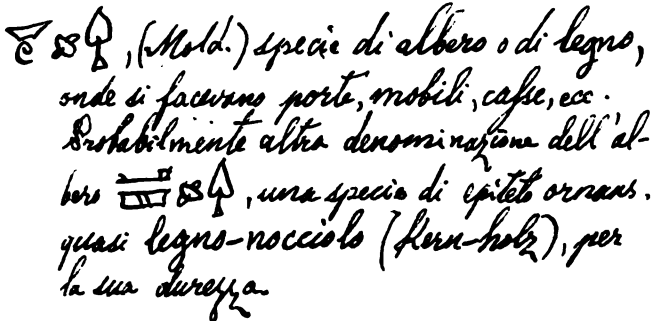 , (Mold.) specie di albero o di legno,
onde si facevano porte, mobili, casse, ecc.
Probabilmente altra denominazione dell'al-
bero , una specie di epiteto ornans.
quasi legno-nocciolo (Kern-holz), per
la sua durezza.